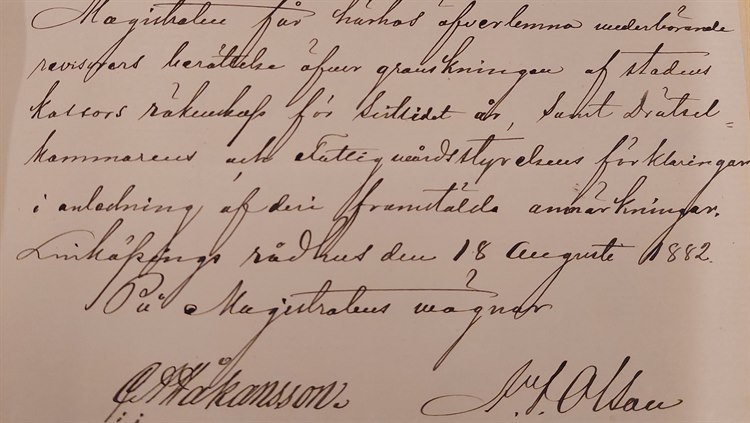 Magistraten får härhos öfverlemna vederbörande
revisorers berättelse öfver granskningen af stadens
kassors räkenskap för sistlidet år, samt Drätsel=
kammarens och Fattigvårdsstyrelsens förklaringar
i anledning af deri framstälda anmärkningar.
Linköpings rådhus den 18 Augusti 1882.
På Magistratens vägnar
Håkansson.
Olsson